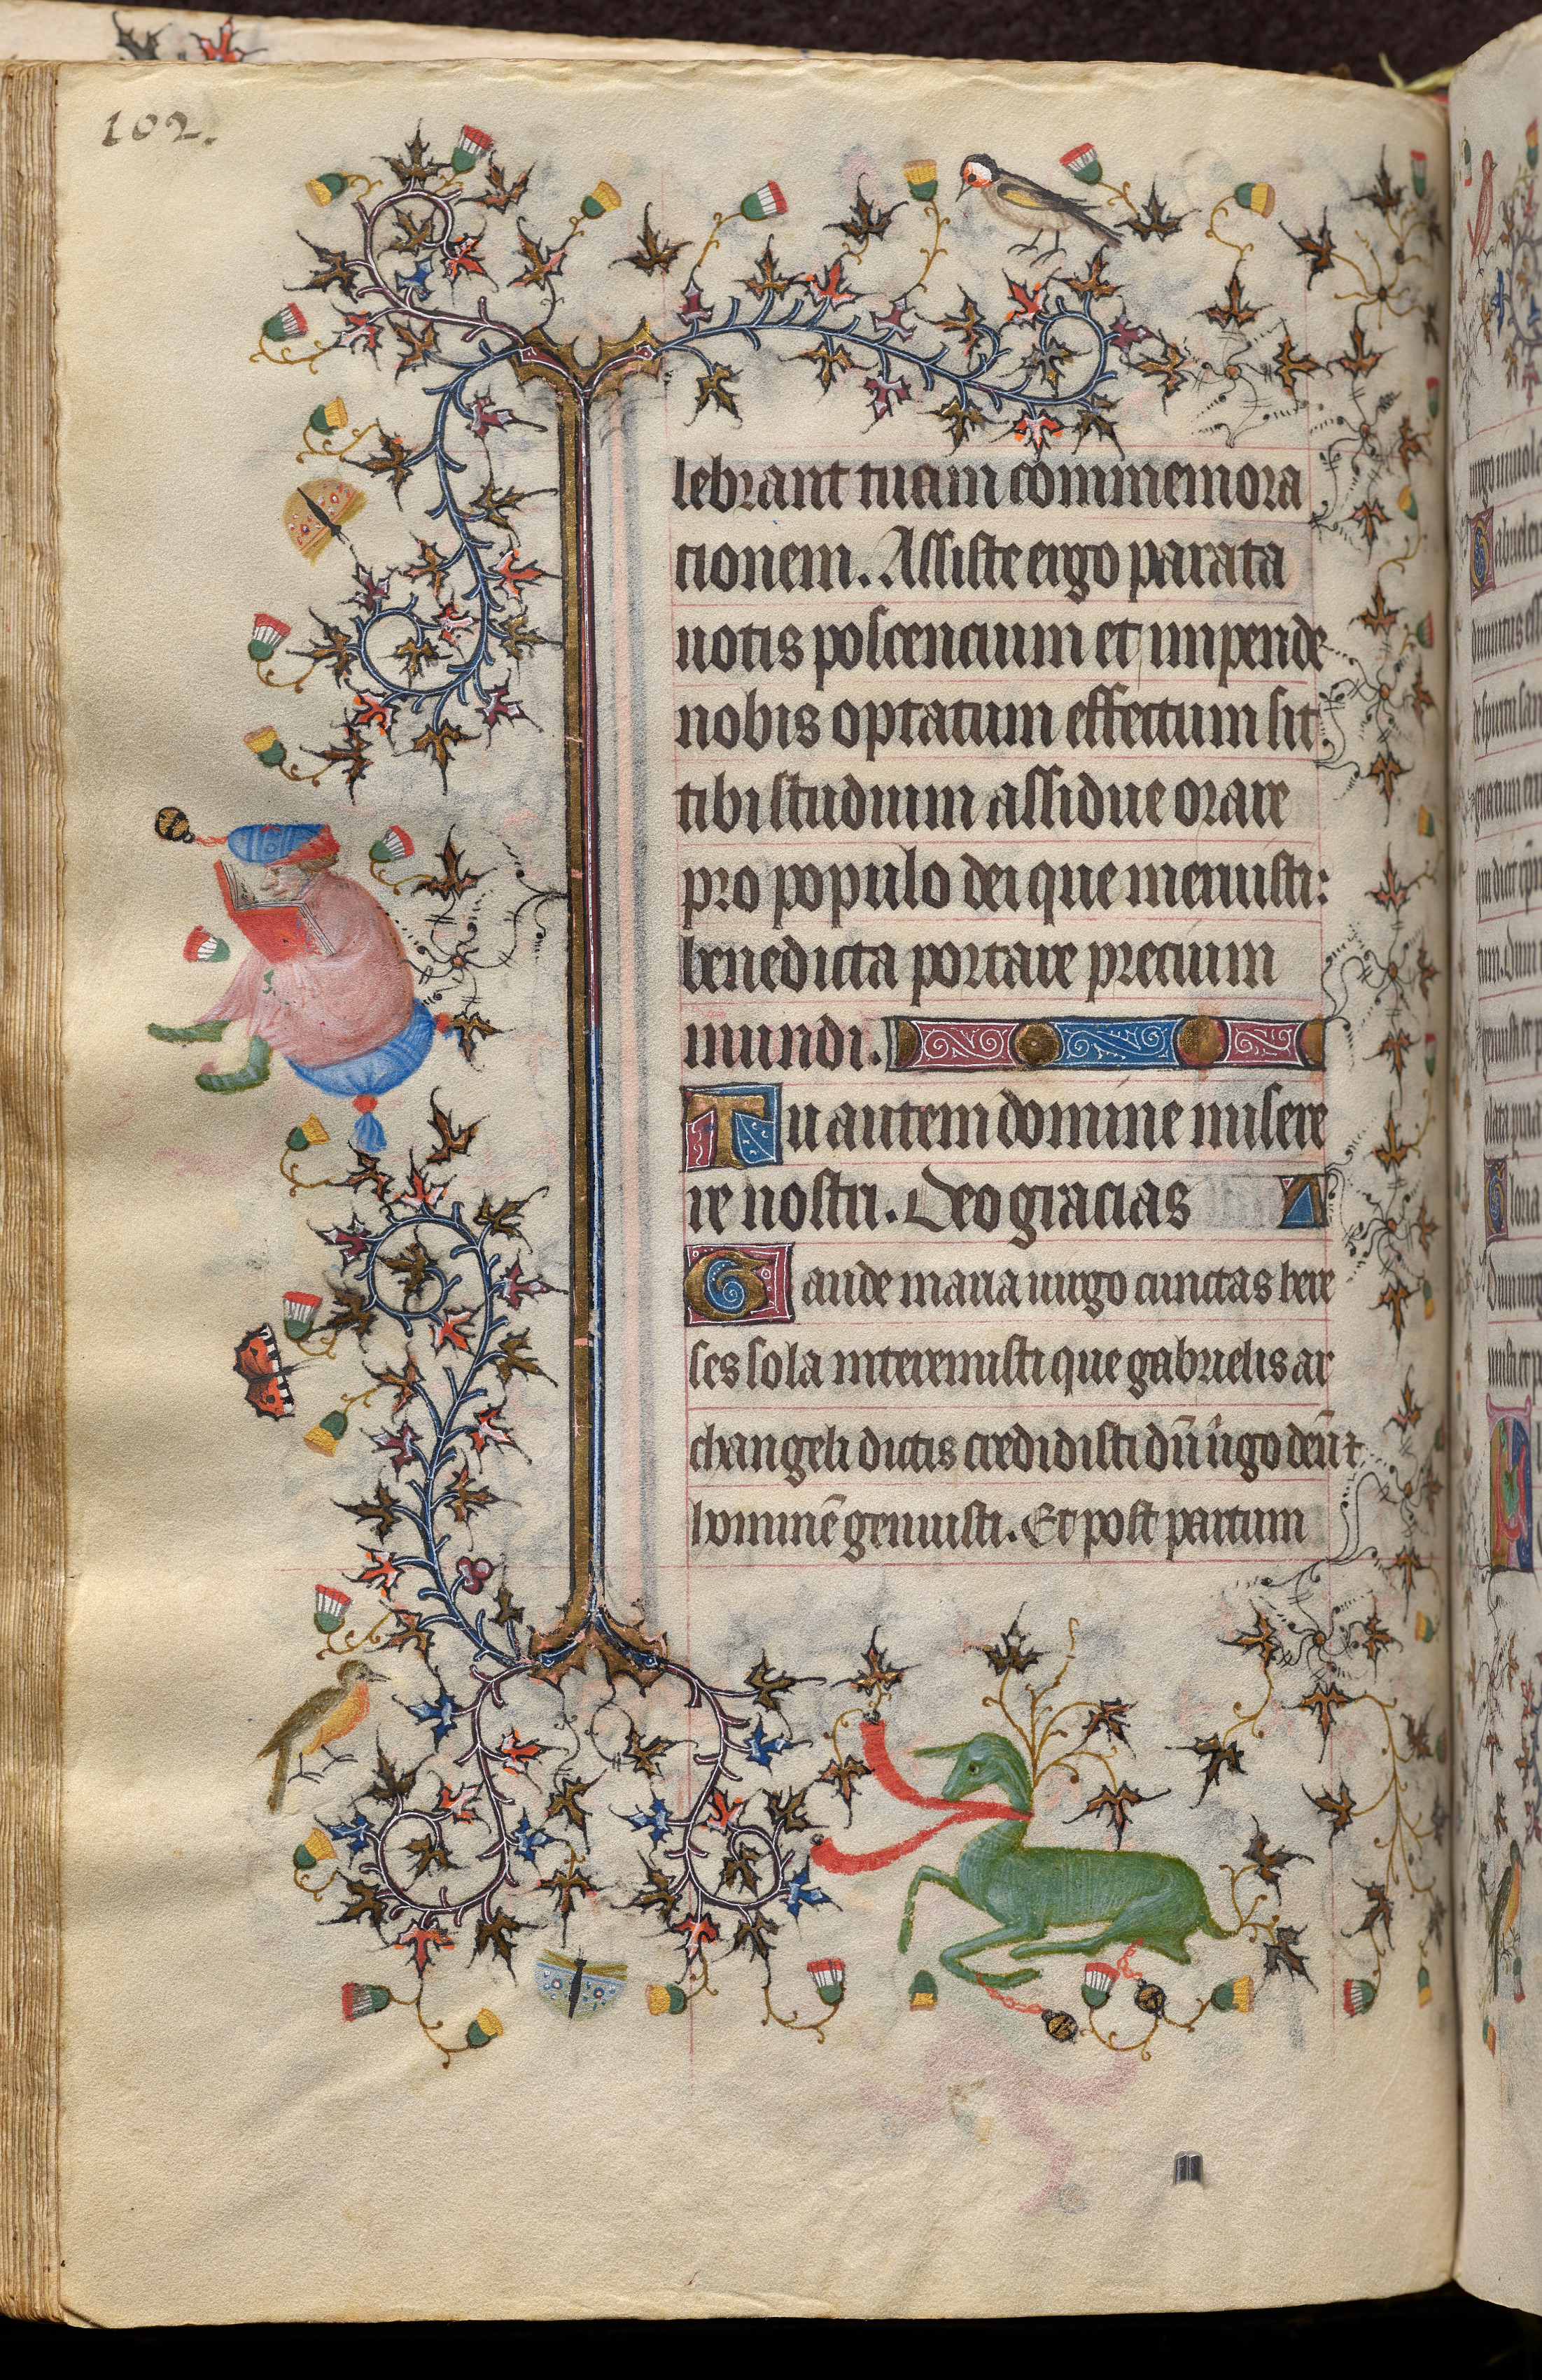 102.
lebrant tuam commemora
tionem. Assiste ergo parata
uotis poscencium et impende
nobis optatum effectum sit
tibi studium assidue orare
pro populo dei que meruisti:
benedicta portare precium
mundi.
Tu autem domine misere
re nostri. Deo gracias A
Gaude maria uirgo cunctas here
ses sola interemisti que gabrielis ar
changeli dictis credidisti dū ûgo deū ⁊
hominē genuisti. Et post partum